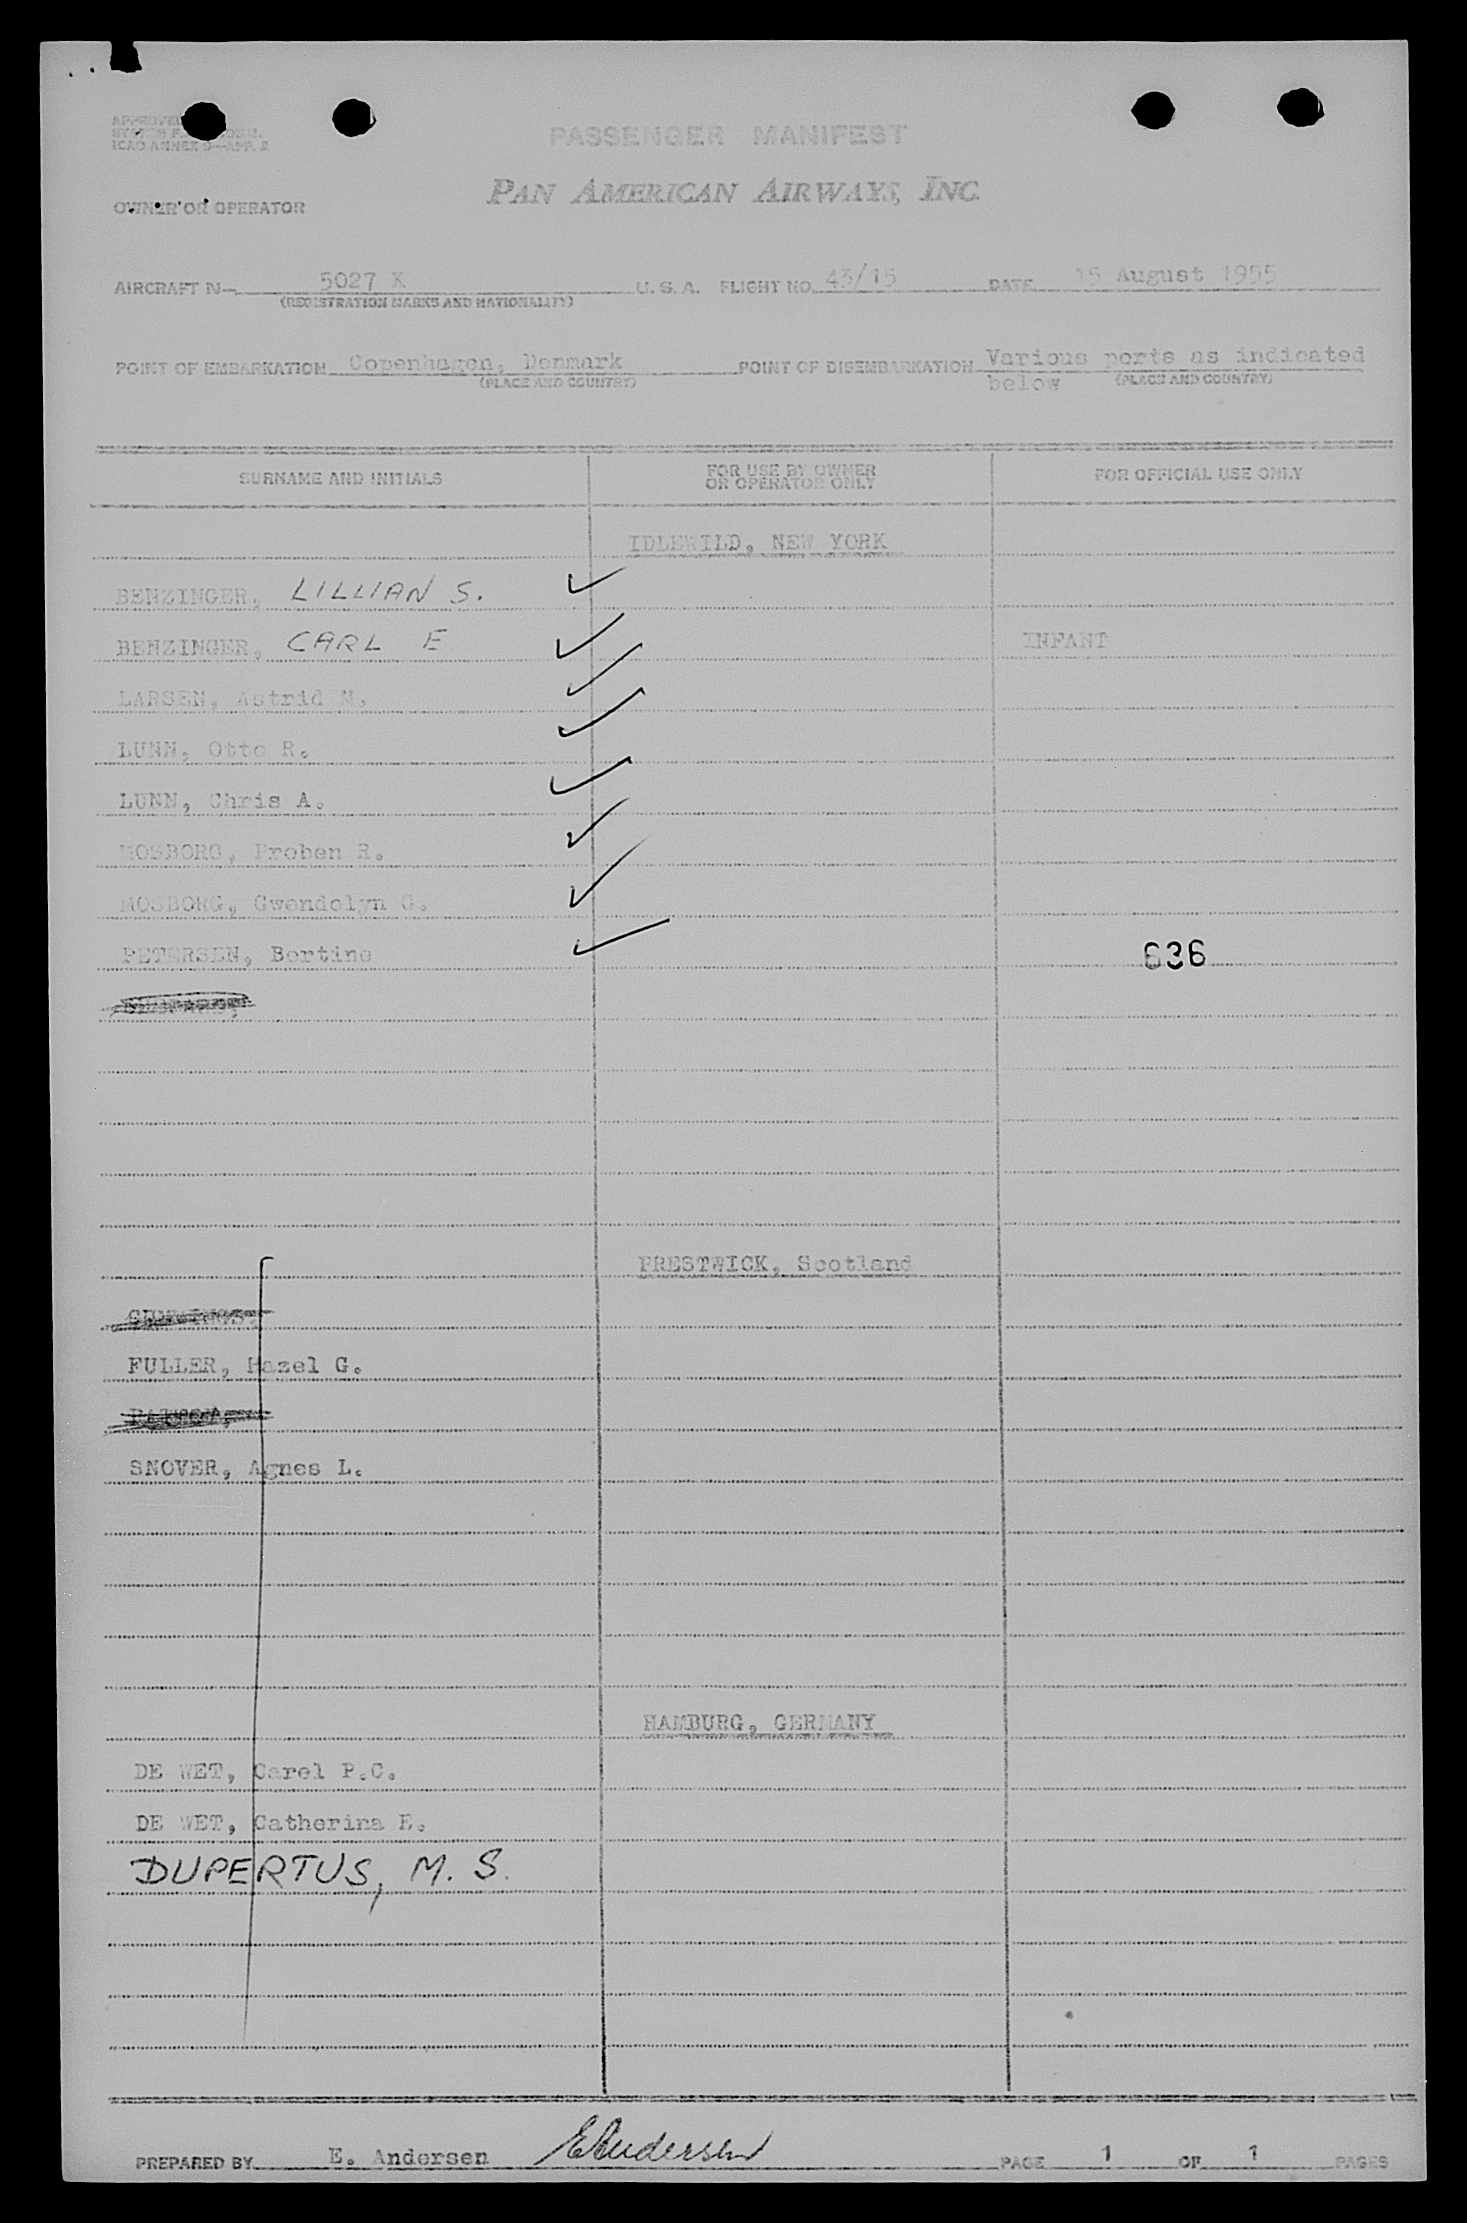 APPROVED
ICAO ANNEX 9—APP. 2
PASSENGER MANIFEST
PAN AMERICAN AIRWAYS, INC.
OWNER OR OPERATOR
AIRCRAFT N— 5027 K U. S. A. FLIGHT NO. 43/15 DATE 15 August 1955
(REGISTRATION MARKS AND NATIONALITY)
POINT OF EMBARKATION Copenhagen, Denmark POINT OF DISEMBARKATION Various ports as indicated
(PLACE AND COUNTRY) below (PLACE AND COUNTRY)
SURNAME AND INITIALS FOR USE BY OWNER OR OPERATOR ONLY FOR OFFICIAL USE ONLY
IDLEWILD, NEW YORK
BENZINGER, LILLIAN S. ✓
BENZINGER, CARL E ✓ INFANT
LARSEN, Astrid M. ✓
LUNN, Otto R. ✓
LUNN, Chris A. ✓
MOSBORG, Proben R. ✓
MOSBORG, Gwendolyn G. ✓
PETERSEN, Bertine ✓ 636
PRESTWICK, Scotland
FULLER, Hazel G.
SNOVER, Agnes L.
HAMBURG, GERMANY
DE WET, Carel P.C.
DE WET, Catherina E.
DUPERTUS, M. S.
PREPARED BY E. Andersen EAndersen PAGE 1 OF 1 PAGES